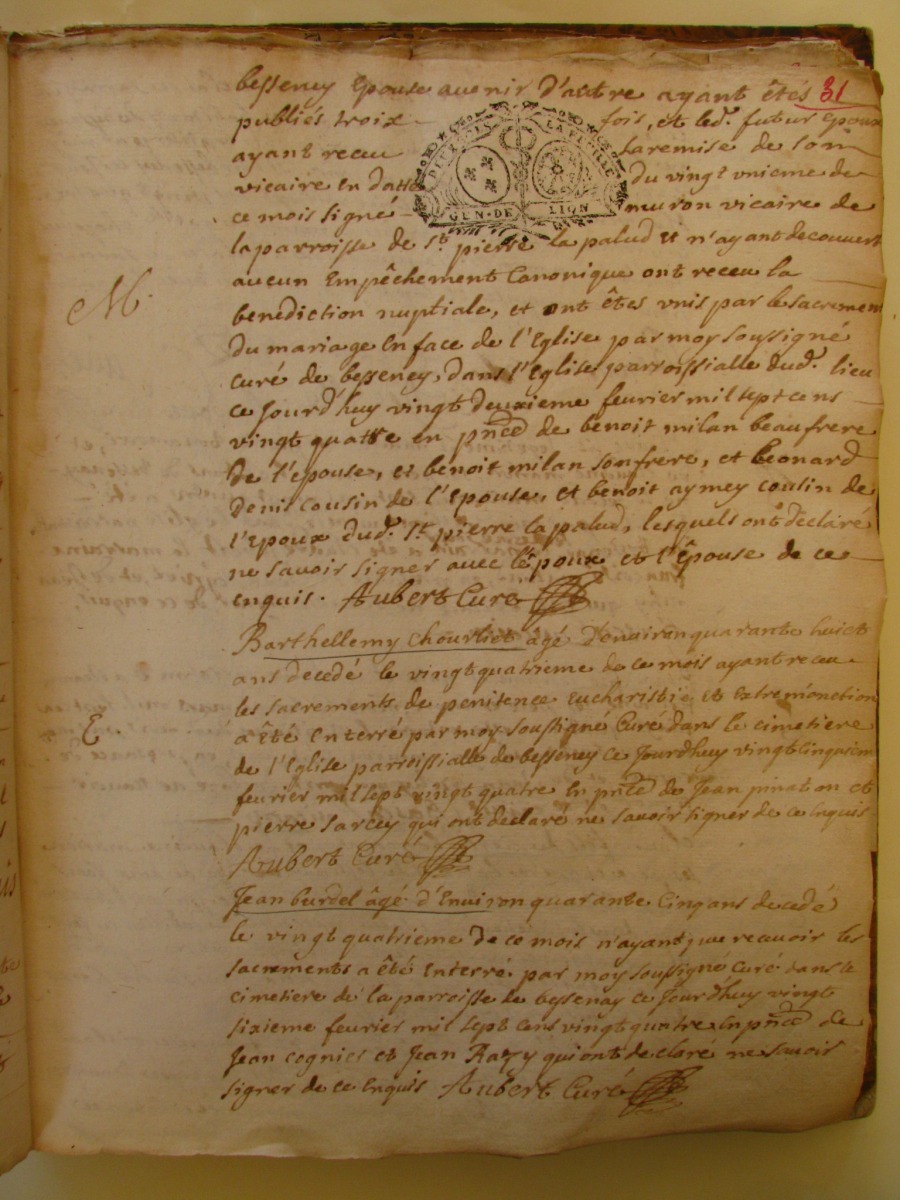 31
besseney Epouse auenir d'autre ayant êtés
publiés troix fois, et led.t futur Epoux
ayant receu la remise de son
vicaire en datte du vingt vnieme de
ce mois signé muron vicaire de
DEUX SOLS LA FEUILLE
GEN. DE LION
la parroisse de St pierre la palud et n'ayant decouvert
aucun Empêchement Canonique ont receu la
benediction nuptiale, et ont êtes vnis par le sacremen
du mariage En face de l'Eglise par moy soussigné
curé de besseney, dans l'Eglise parroissialle dud.t lieu
M.
ce Jourd'huy vingt deuxieme feurier mil sept cens
vingt quatte en pñce de benoit milan beaufrere
de l'epouse, et benoit milan son frere, et Leonard
denis cousin de l'Epouse, et benoit aymey cousin de
l'Epoux dud.t St pierre la palud, lesquels ont déclaré
ne savoir signer avec lêpoux et l'Êpouse de ce
enquis. Aubert Curé
Barthellemy Chourliet âgé d'enairon quarante huict
ans decedé le vingt quatrieme de ce mois ayant receu
les sacrements de penitence Eucharistie et Extremonction
E
a êté Enterré par moy soussigné Curé dans le cimetiere
de l'Eglise parroissialle de besseney ce Jourdhuy vingt Cinquiem
feurier mil sept vingt quatre En pñce de Jean pinaton et
pierre Sarcey qui ont declaré ne savoir signer de ce Enquis
Aubert Curé
Jean burdel âgé d'Enuiron quarante Cinq ans decedé
le vingt quatrieme de ce mois n'ayant pue receuoir les
sacrements a êté Enterré par moy soussigné Curé dans le
cimetiere de la parroisse de bessenay ce Jourd'huy vingt
sixieme feurier mil sept cens vingt quatre En pñce de
Jean cognies et Jean Razy qui ont declaré ne savoir
signer de ce Enquis Aubert Curé